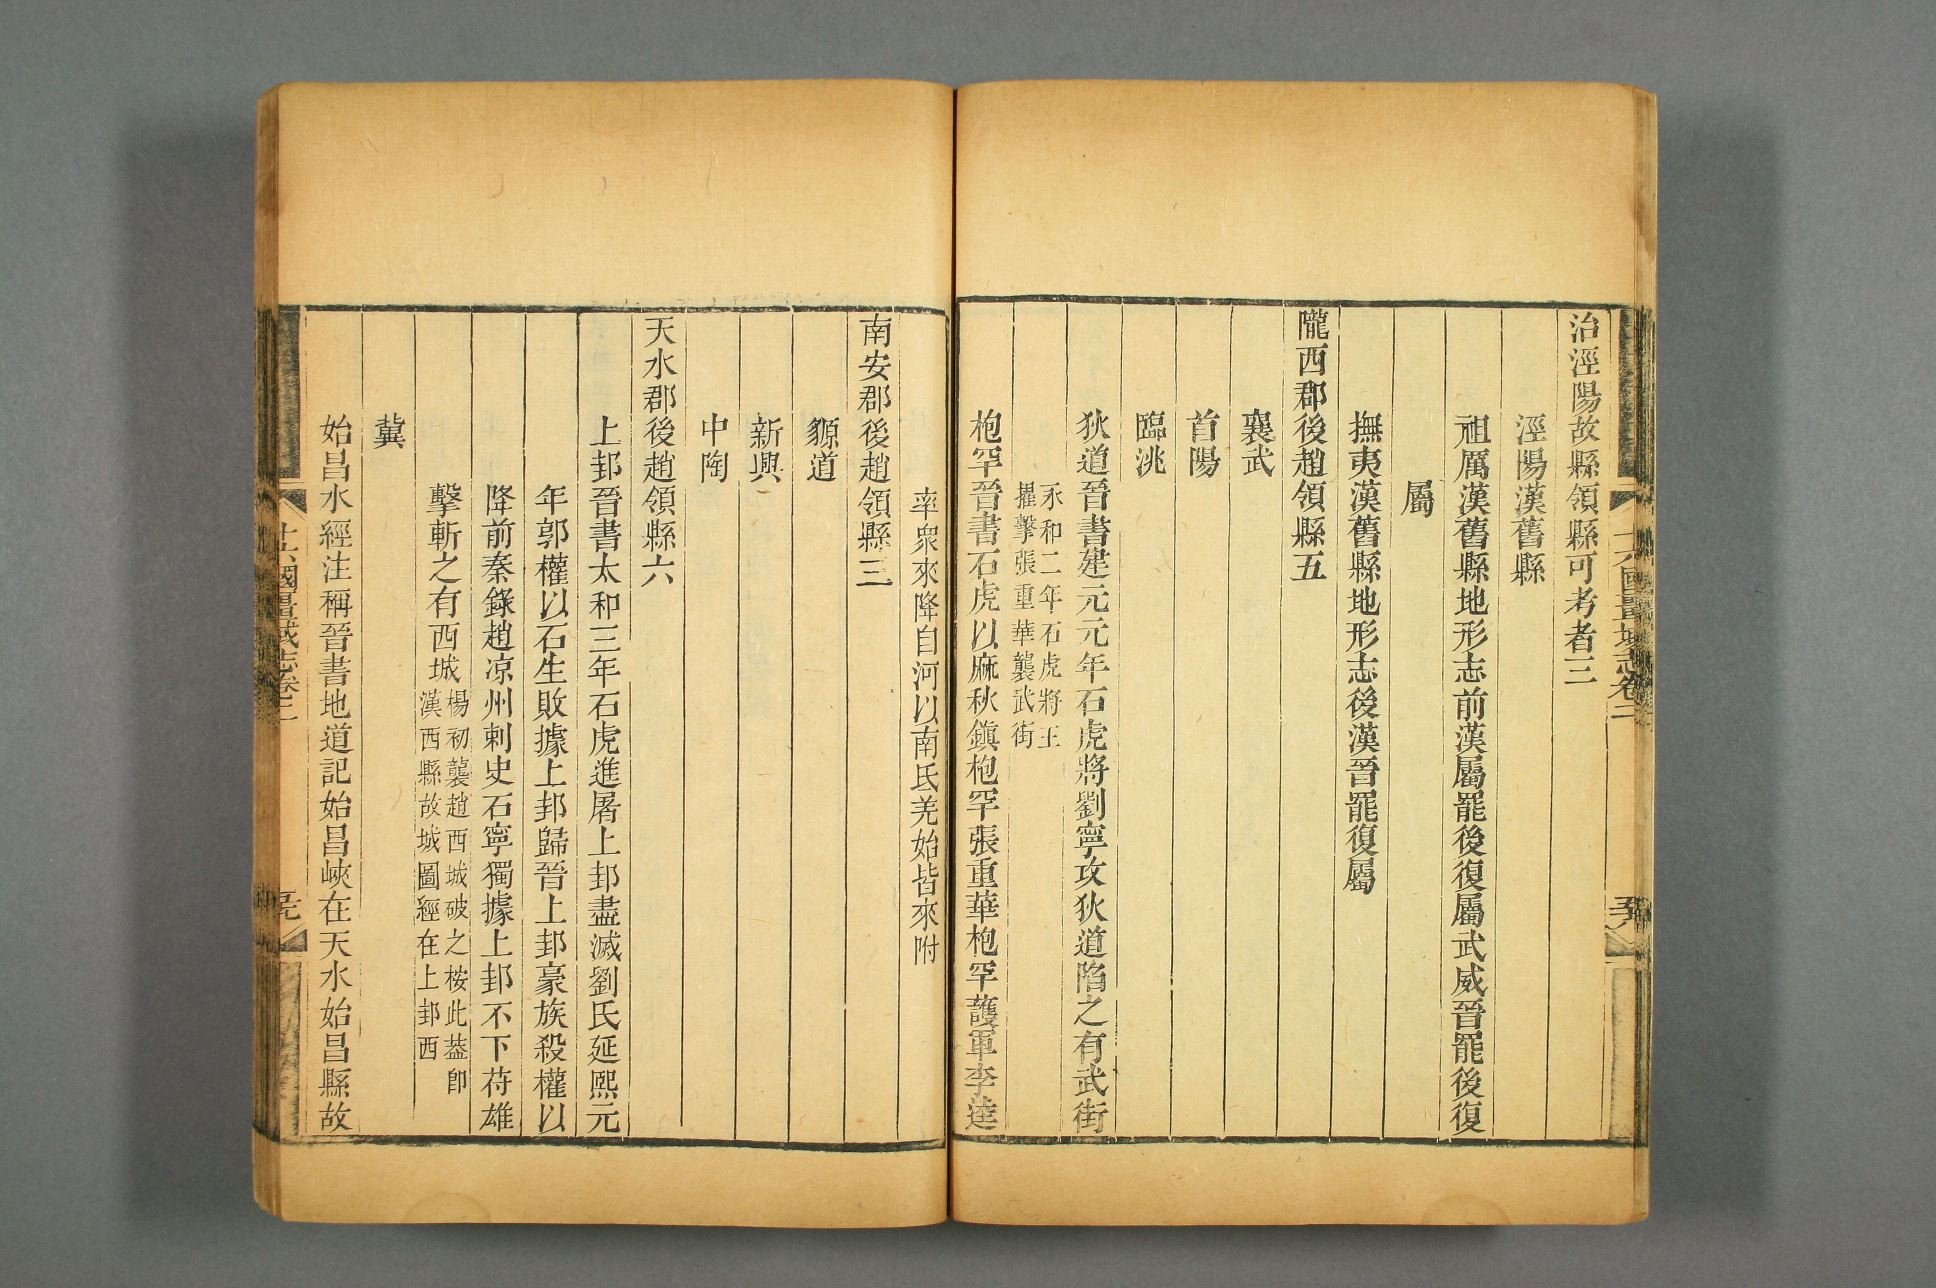 治涇陽故縣領縣可考者三
涇陽漢舊縣
祖厲漢舊縣地形志前漢屬罷後復屬武威晉罷後復
屬
撫夷漢舊縣地形志後漢晉罷復屬
隴西郡後趙領縣五
襄武
首陽
臨洮
狄道晉書建元元年石虎將劉寧攻狄道陷之有武街
永和二年石虎將王
擢擊張重華襲武街
枹罕晉書石虎以麻秋鎮枹罕張重華枹罕護軍李逵
率衆來降自河以南氐羌始皆來附
南安郡後趙領縣三
豲道
新興
中陶
天水郡後趙領縣六
上邽晉書太和三年石虎進屠上邽盡滅劉氏延熙元
年郭權以石生敗據上邽歸晉上邽豪族殺權以
降前秦錄趙涼州刺史石寧獨據上邽不下苻雄
擊斬之有西城
楊初襲趙西城破之桉此葢卽
漢西縣故城圖經在上邽西
冀
始昌水經注稱晉書地道記始昌峽在天水始昌縣故
十六國疆域志卷二